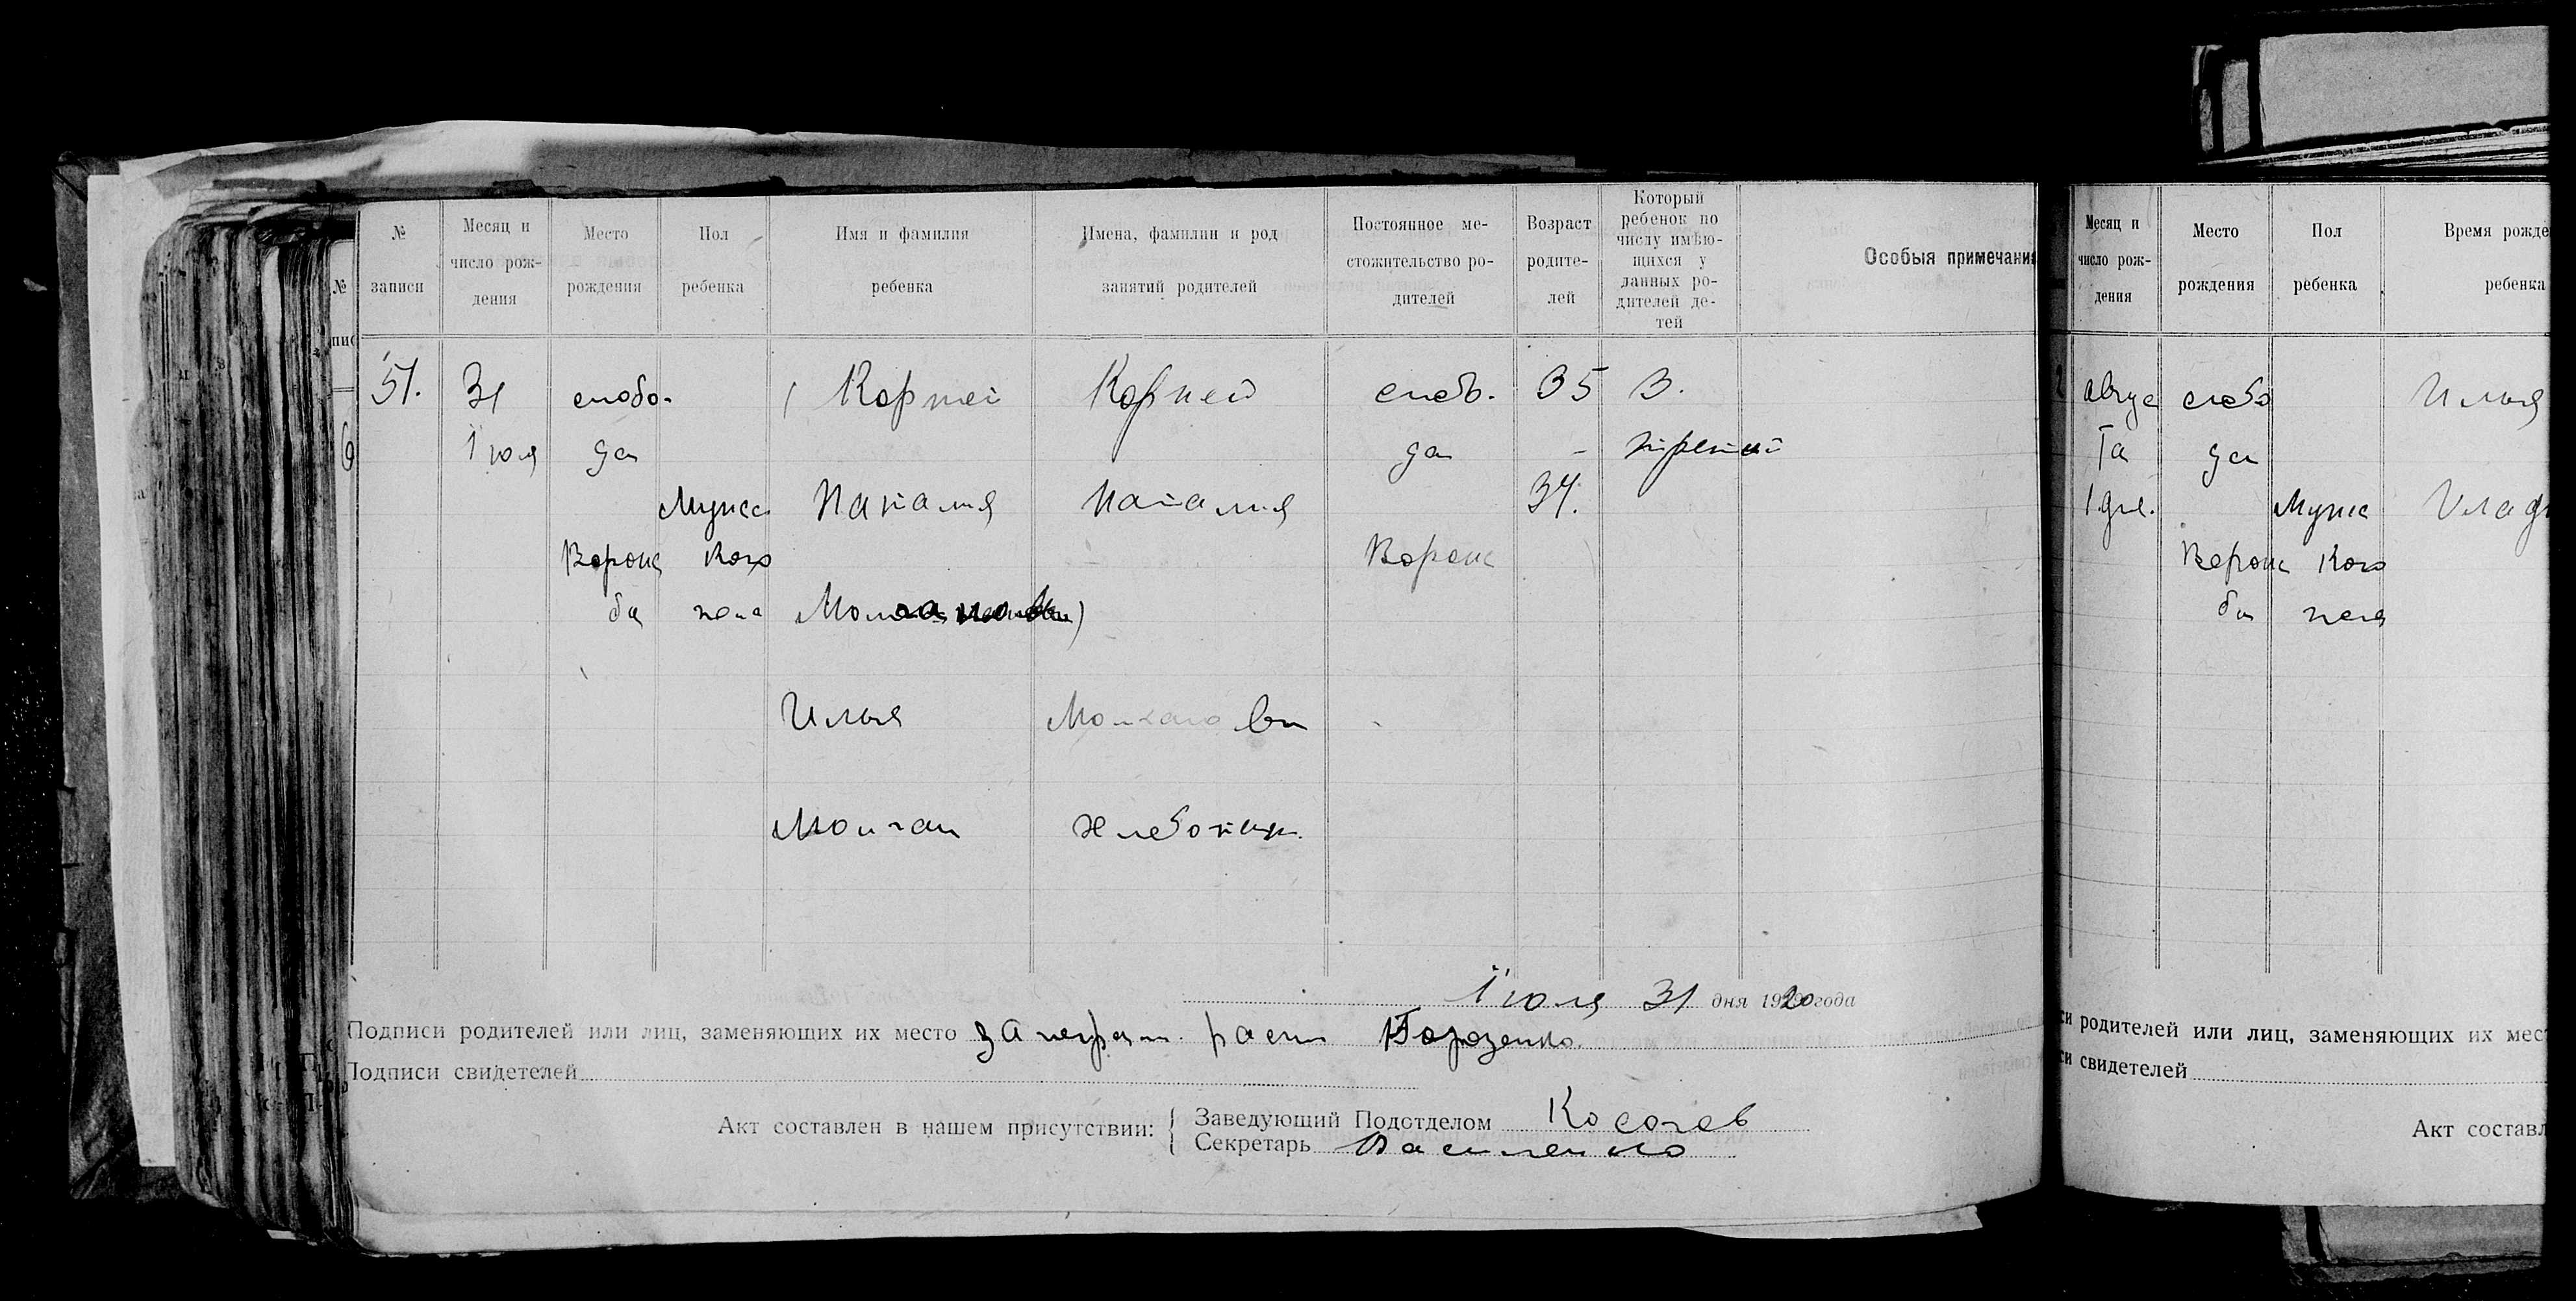 № записи
Месяц и число рождения
Место рождения
Пол ребенка
Имя и фамилия ребенка
Имена, фамилии и род занятий родителей
Постоянное местожительство родителей
Возраст родителей
Который ребенок по числу имѣющихся у данных родителей детей
Особыя примечания
51. 31 слобо- Корней Корней слоб. 35 3.
Iюля да да - третий
Мужс Наталия Наталия 34.
Воронц кого Воронц
ба пола
Илья Молчановы
Молчан Хлебопаш.
Iюля 31 дня 1920 года
Подписи родителей или лиц, заменяющих их место за неграм. расп
Подписи свидетелей
Акт составлен в нашем присутствии:
Заведующий Подотделом Косачев
Секретарь Василенко
Месяц и число рождения
Место рождения
Пол ребенка
Время рожде
ребенка
Авгус слобо Илья
та да
1 дня. Мужс
Воронц кого
ба пола
си родителей или лиц, заменяющих их мест
си свидетелей
Акт составл